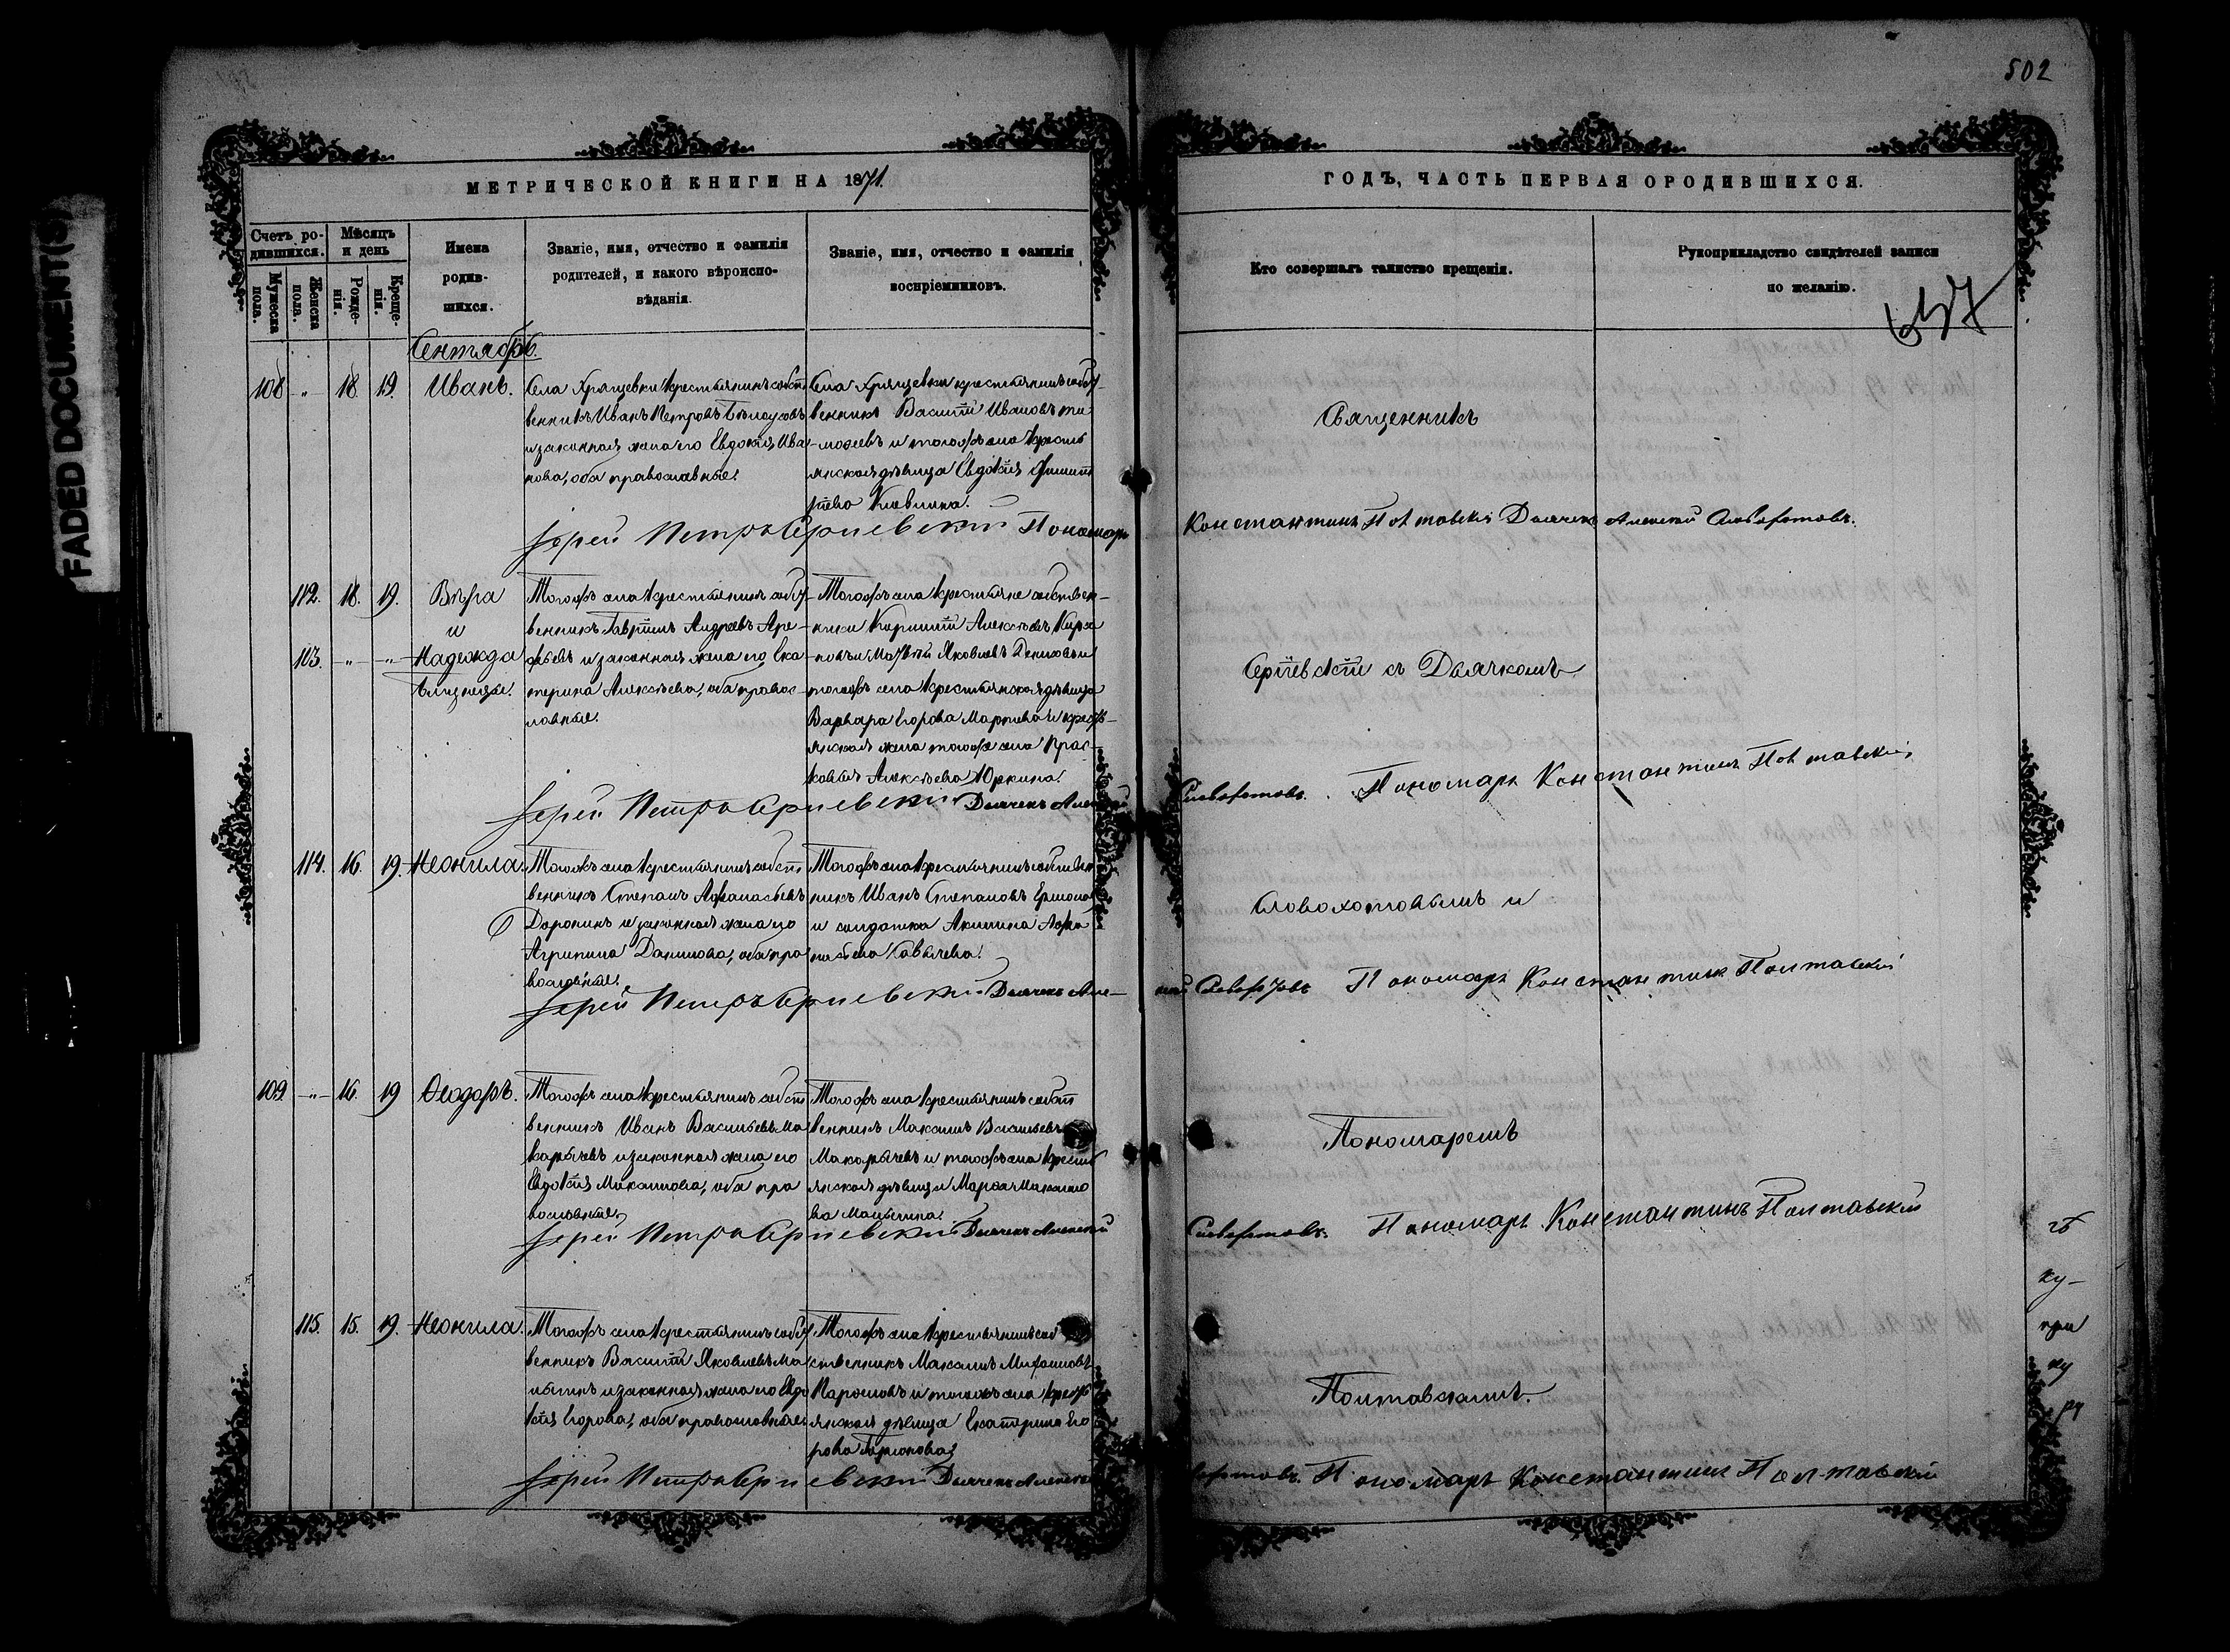 502
FADED DOCUMENT(S)
МЕТРИЧЕСКОЙ КНИГИ НА 1871.
ГОДЪ, ЧАСТЬ ПЕРВАЯ О РОДИВШИХСЯ.
Счетъ ро-
дившихся.
Мѣсяцъ
и день
Мужеска
пола.
Женска
пола.
Рожде-
нія.
Креще-
нія.
Имена
родив-
шихся.
Званіе, имя, отчество и фамилія
родителей, и какого вѣроиспо-
вѣданія.
Званіе, имя, отчество и фамилія
воспріемниковъ.
Кто совершалъ таинство крещенія.
Рукоприкладство свидѣтелей записи
по желанію.
657
Сентябрь.
108 „ 18 19. Иванъ.
Села Хрящевки крестьянинъ собст
венникъ Иванъ Петровъ Бѣлоусовъ
и законная жена его Евдокія Ива
нова, оба православные.
Села Хрящевки крестьянинъ собст
венникъ Василій Ивановъ Ти
мофеевъ и тогожъ села кресть
янская дѣвица Евдокія Филип
пова
Священникъ
Іерей Петръ Сергіевскій Пономарь
Константинъ Полтавскій Дьячекъ Алексей
112. 18. 19. Вѣра
и
103. „ „ Надежда
близнецы.
Тогожъ села крестьянинъ собст
венникъ Гавріилъ Андреевъ Аре-
фьевъ и законная жена его Ека
терина Алексѣева, оба правос-
лавные.
Тогожъ села крестьяне собствен-
ники Кириллъ Алексѣевъ
Яковлевъ и
тогожъ села крестьянская дѣвица
Варвара Егорова и кресть-
янская жена тогожъ села Прас-
ковья Алексѣева Юркина.
Сергіевскій съ Дьячкомъ
Іерей Петръ Сергіевскій Дьячекъ Алексей
Пономарь Константинъ Полтавскій
114. 16. 19. Неонила.
Тогожъ села крестьянинъ собст
венникъ Степанъ Афанасьевъ
Доронинъ и законная жена его
Агрипина Данилова, оба пра
вославные.
Тогожъ села крестьянинъ собствен
никъ Иванъ Степановъ
и солдатка Акилина Афа
насьева
и
Іерей Петръ Сергіевскій Дьячекъ Але-
ксей Пономарь Константинъ Полтавскій
109 „ 16. 19 Ѳеодоръ.
Тогожъ села крестьянинъ собст
венникъ Иванъ Васильевъ Ма
карычевъ и законная жена его
Евдокія Максимова, оба пра
вославные.
Тогожъ села крестьянинъ собст
венникъ Максимъ Васильевъ
Макарычевъ и тогожъ села кресть
янская дѣвица Марѳа Максимо
ва
Пономаремъ
Іерей Петръ Сергіевскій Дьячекъ Алексей
Пономарь Константинъ Полтавскій
115. 15. 19. Неонила.
Тогожъ села крестьянинъ собст
венникъ Василій Яковлевъ Ма
и законная жена его Евдо
кія Егорова, оба православные
Тогожъ села крестьянинъ соб
ственникъ Максимъ
и тогожъ села кресть
янская дѣвица Екатерина Его
рова
Полтавскимъ.
Іерей Петръ Сергіевскій Дьячекъ Алексей
Пономарь Константинъ Полтавскій
ку-
при
ку